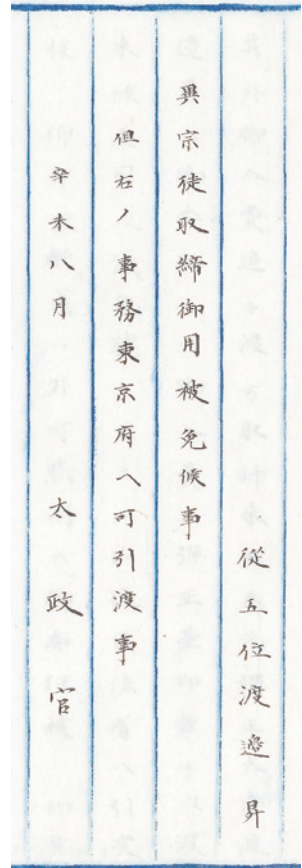 從五位渡邉昇
異宗徒取締御用被免候事
但右ノ事務東京府ヘ可引渡事
辛未八月 太政官